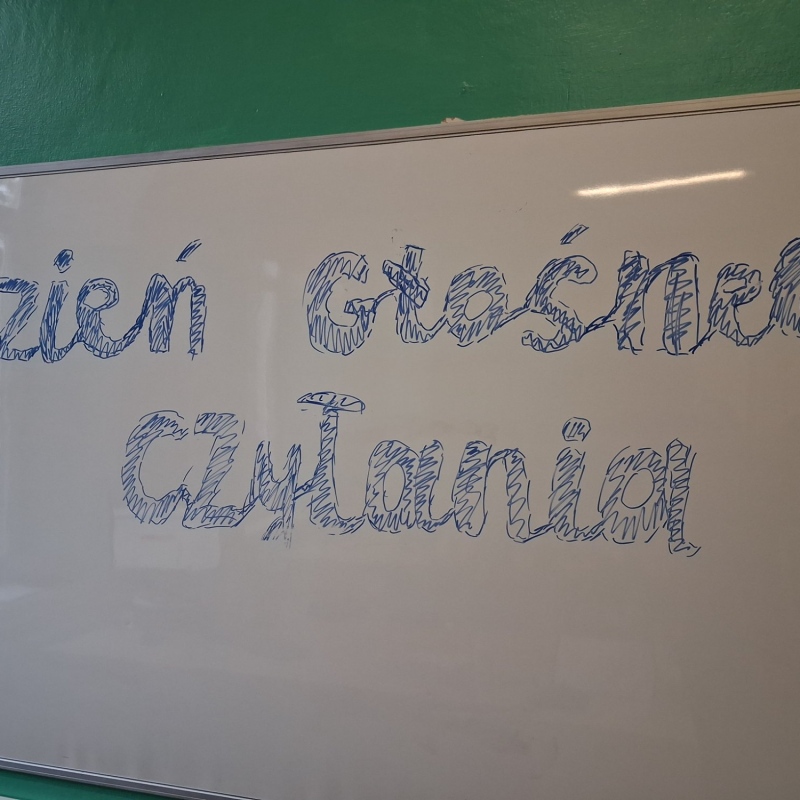 zień Głośne
Czytania